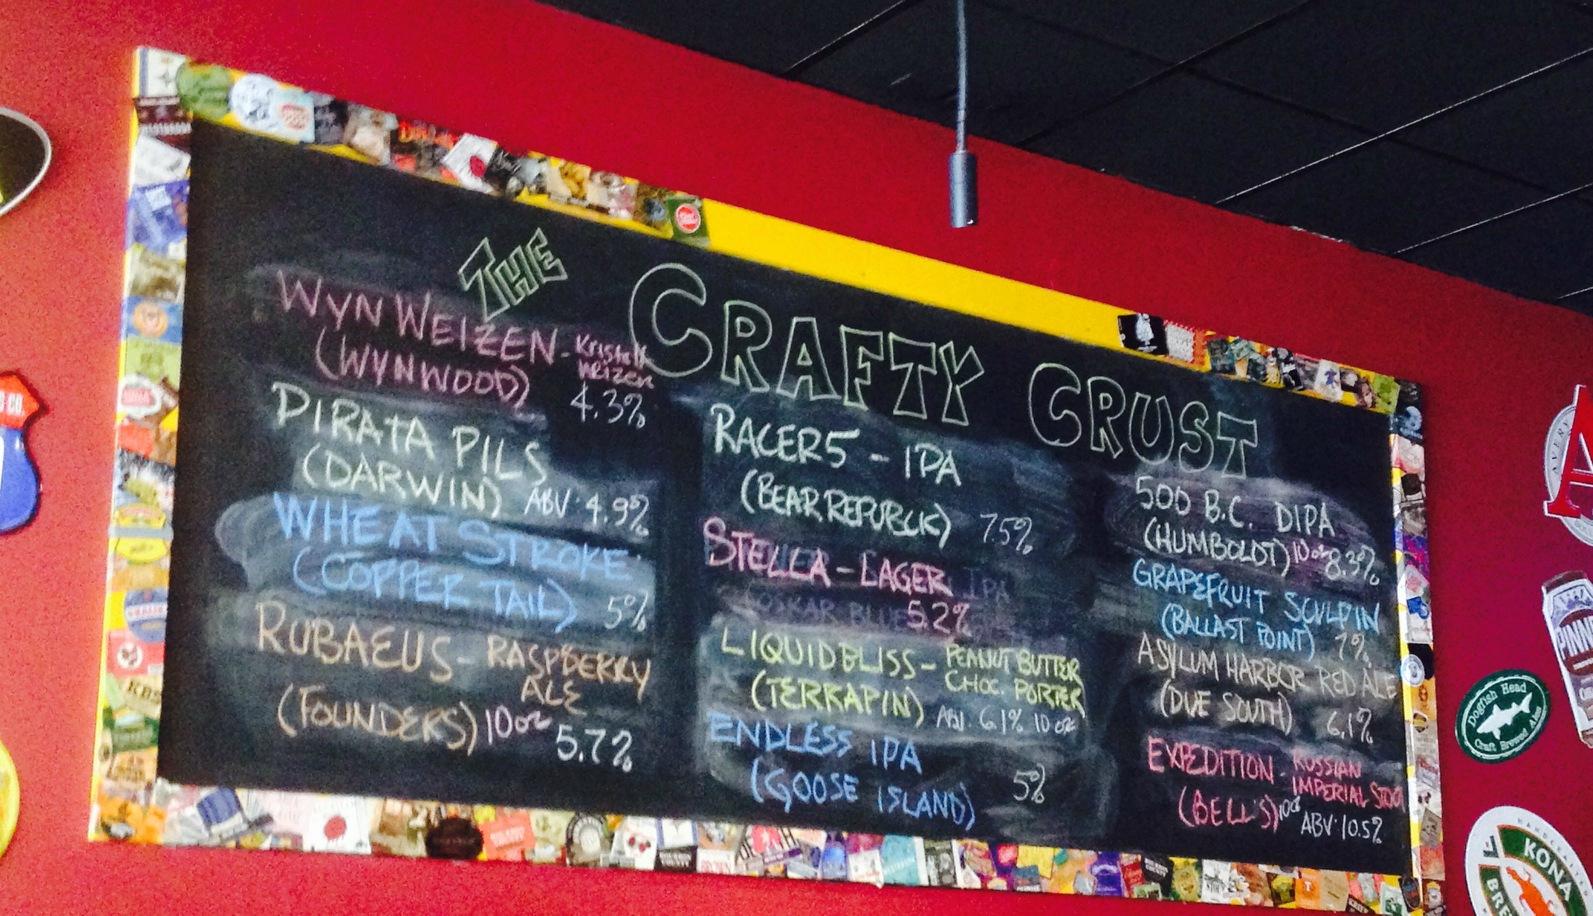 THE CRAFTY CRUST
WYNWEIZEN - Kristall
Weizen
(WYNWOOD) 4.3%
PIRATA PILS
(DARWIN) ABV 4.9%
WHEAT STROKE
(COPPER TAIL) 5%
RUBAEUS - RASPBERRY
ALE
(FOUNDERS) 10oz 5.7%
RACER5 - IPA
(BEAR REPUBLIC) 7.5%
STELLA - LAGER IPA
(OSKAR BLUES 5.2%
LIQUID BLISS - PEANUT BUTTER
CHOC. PORTER
(TERRAPIN) ABV. 6.1% 10 oz
ENDLESS IPA
(GOOSE ISLAND) 5%
500 B.C. DIPA
(HUMBOLDT) 10oz 8.3%
GRAPEFRUIT SCULPIN
(BALLAST POINT) 7%
ASYLUM HARBOR RED ALE
(DUE SOUTH) 6.1%
EXPEDITION - RUSSIAN
IMPERIAL STOUT
(BELL'S) 10oz ABV 10.5%
CO.
AVERY
A
Dogfish Head
Craft Brewed Ales
KONA